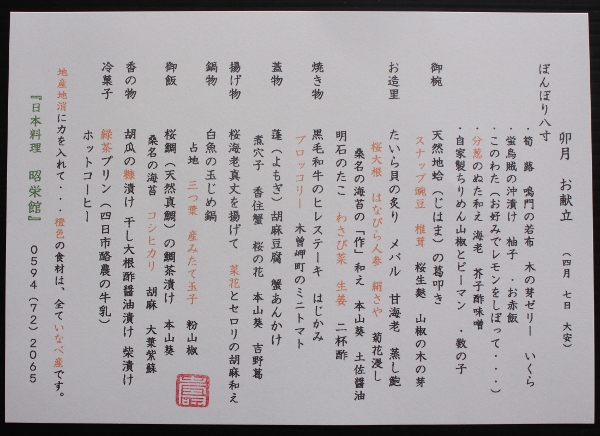 卯月 お献立 (四月 七日 大安)
ぼんぼり八寸
・筍 蕗 鳴門の若布 木の芽ゼリー いくら
・蛍烏賊の沖漬け 柚子 ・お赤飯
・このわた(お好みでレモンをしぼって・・・)
・分葱のぬた和え 海老 芥子酢味噌
・自家製ちりめん山椒とピーマン ・数の子
御椀 天然地蛤(じはま)の葛叩き
スナップ豌豆 椎茸 桜生麩 山椒の木の芽
お造里 たいら貝の炙り メバル 甘海老 蒸し鮑
桜大根 はなびら人参 絹さや 菊花浸し
桑名の海苔の「作」和え 本山葵 土佐醤油
明石のたこ わさび菜 生姜 二杯酢
焼き物 黒毛和牛のヒレステーキ はじかみ
ブロッコリー 木曽岬町のミニトマト
蓋物 蓬(よもぎ)胡麻豆腐 蟹あんかけ
煮穴子 香住蟹 桜の花 本山葵 吉野葛
揚げ物 桜海老真丈を揚げて 菜花とセロリの胡麻和え
鍋物 白魚の玉じめ鍋
占地 三つ葉 産みたて玉子 粉山椒
御飯 桜鯛(天然真鯛)の鯛茶漬け 本山葵
桑名の海苔 コシヒカリ 胡麻 大葉紫蘇
香の物 胡瓜の糠漬け 干し大根酢醤油漬け 柴漬け
冷菓子 緑茶プリン(四日市酪農の牛乳)
ホットコーヒー
地産地消に力を入れて・・・橙色の食材は、全ていなべ産です。
『日本料理 昭栄館』 0594(72)2065
壽